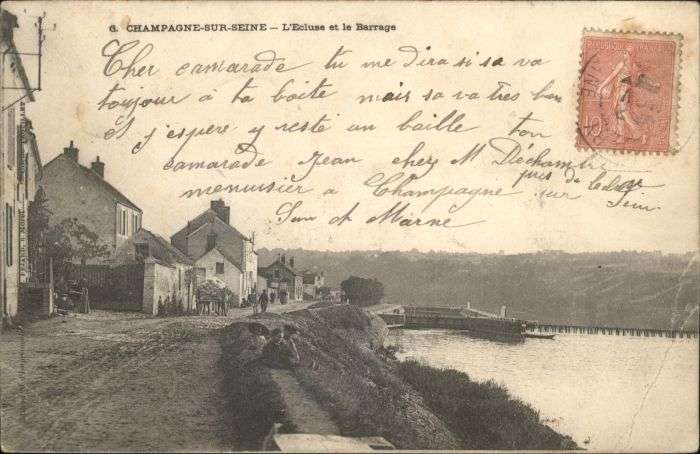 6. CHAMPAGNE-SUR-SEINE — L'Ecluse et le Barrage
Cher camarade tu me dira si sa va
toujour à ta boite mais sa va tres bien
J'espère y resté un baille ton
camarade Jean chez M Déchambre
menuisier à Champagne sur Seine
près de l'ecluse
Seine et Marne